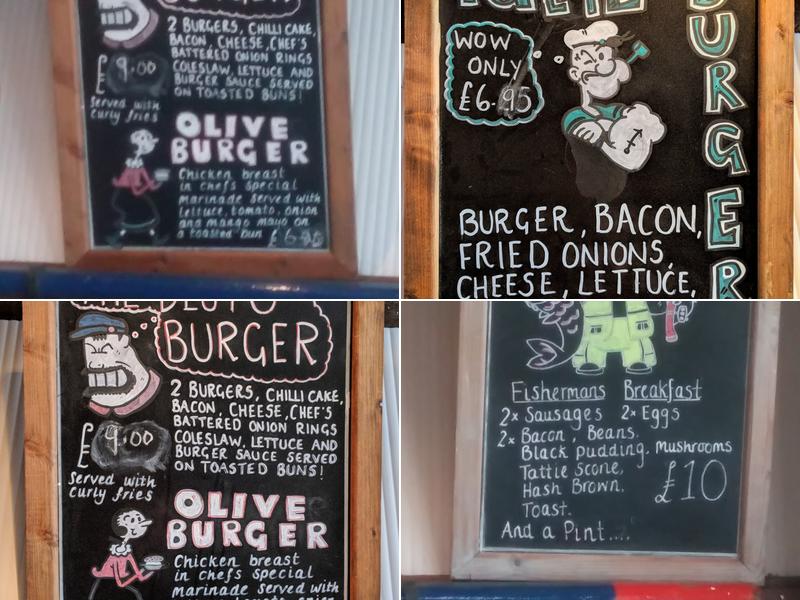 BURGER
2 BURGERS, CHILLI CAKE,
BACON, CHEESE, CHEF'S
BATTERED ONION RINGS
COLESLAW, LETTUCE AND
BURGER SAUCE SERVED
ON TOASTED BUNS!
£9.00
Served with
Curly fries
OLIVE
BURGER
Chicken breast
in chefs special
marinade served with
lettuce, tomato, onion
and mango mayo on
a toasted bun £6.95
WOW
ONLY
£6.95
BURGER
BURGER, BACON,
FRIED ONIONS,
CHEESE, LETTUCE,
BLUTO
BURGER
2 BURGERS, CHILLI CAKE,
BACON, CHEESE, CHEF'S
BATTERED ONION RINGS
COLESLAW, LETTUCE AND
BURGER SAUCE SERVED
ON TOASTED BUNS!
£9.00
Served with
Curly fries
OLIVE
BURGER
Chicken breast
in chefs special
marinade served with
Fishermans Breakfast
2x Sausages 2x Eggs
2x Bacon, Beans.
Black pudding. Mushrooms
Tattie Scone,
Hash Brown.
Toast.
£10
And a Pint....